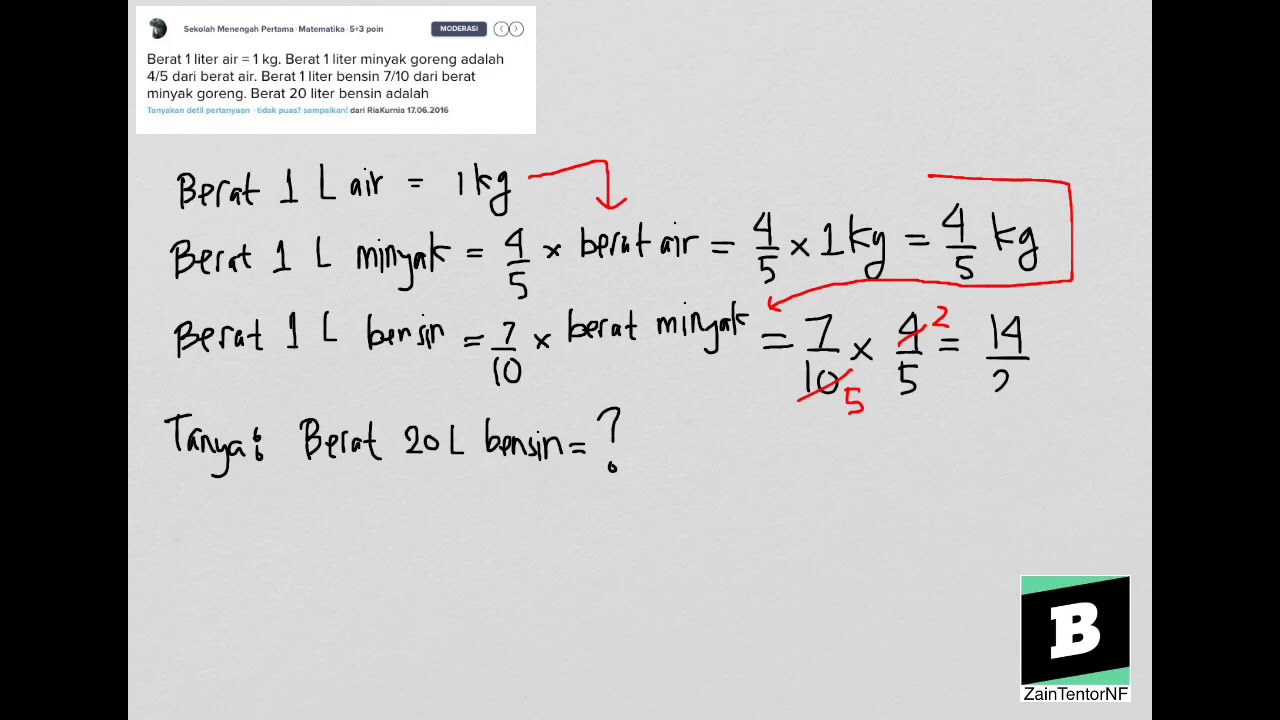 Sekolah Menengah Pertama · Matematika · 5+3 poin MODERASI
Berat 1 liter air = 1 kg. Berat 1 liter minyak goreng adalah
4/5 dari berat air. Berat 1 liter bensin 7/10 dari berat
minyak goreng. Berat 20 liter bensin adalah
Tanyakan detil pertanyaan · tidak puas? sampaikan! dari RiaKurnia 17.06.2016
Berat 1 L air = 1 kg
Berat 1 L minyak = 4/5 × berat air = 4/5 × 1 kg = 4/5 kg
Berat 1 L bensin = 7/10 × berat minyak = 7/10 × 4/5 = 14/2
5 2
Tanya: Berat 20 L bensin = ?
B
ZainTentorNF